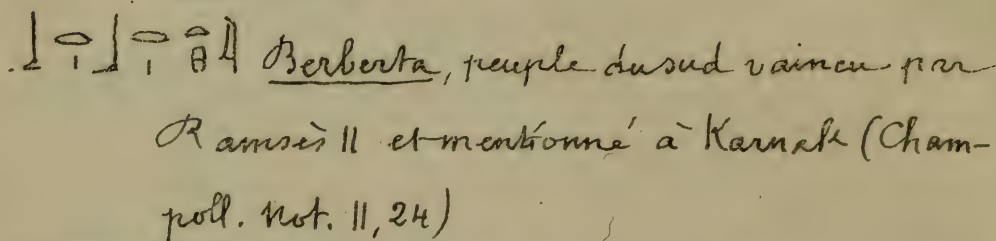 𓃀𓂋𓏤𓃀𓂋𓏤 Berberta, peuple du sud vaincu par
Ramsès II et mentionné à Karnak (Cham-
poll. Not. II, 24)